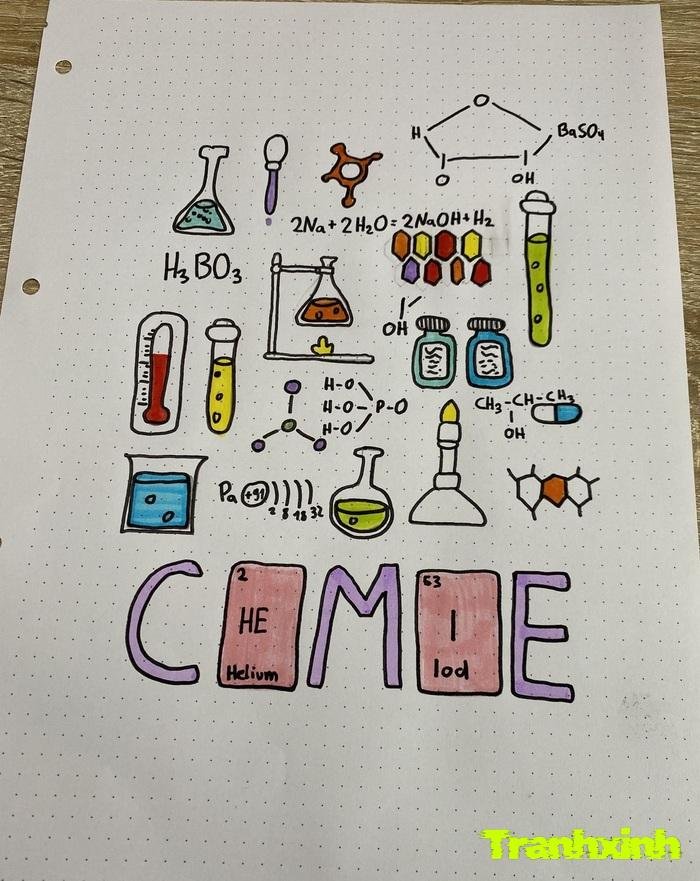 O
H
BaSO4
O
OH
2Na + 2H2O = 2NaOH + H2
H3BO3
OH
H-O
H-O-P-O
H-O
CH3-CH-CH3
OH
Pa +91 ))))
2 8 18 32
2
HE
Helium
63
I
Iod
C M E
Tranhxinh